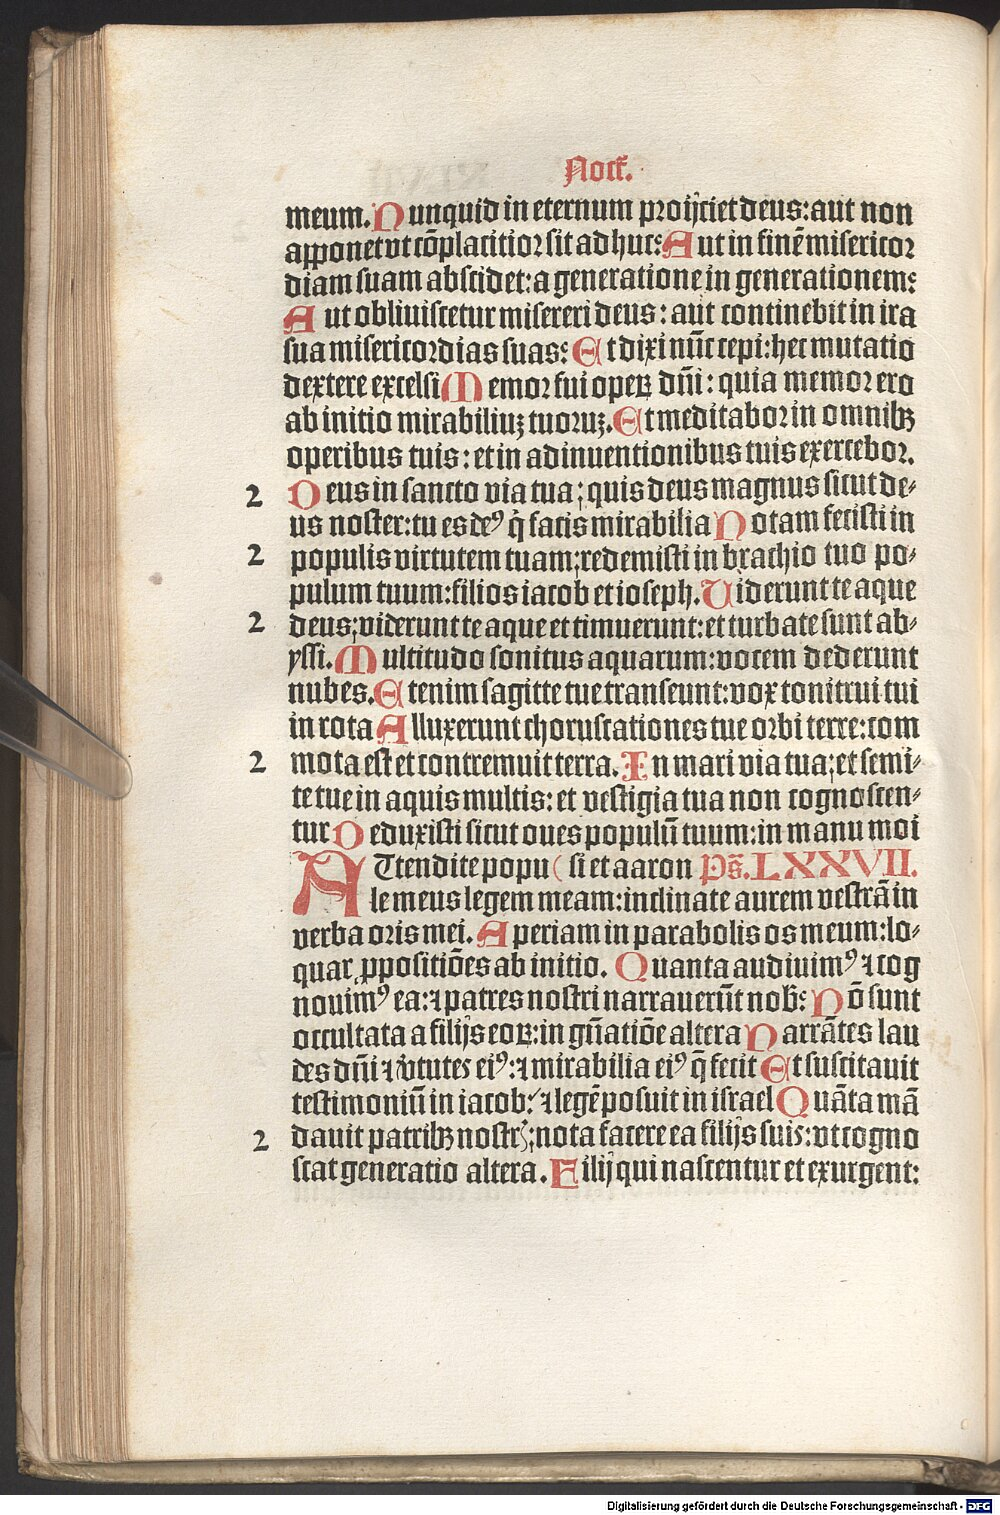 Noct̄.
meum. Nunquid in eternum proijciet deus: aut non
apponet vt cōplacitior sit adhuc: Aut in finē misericor
diam suam abscidet: a generatione in generationem:
Aut obliuiscetur misereri deus: aut continebit in ira
sua misericordias suas: Et dixi nūc cepi: hec mutatio
dextere excelsi Memor fui operꝝ dn̄i: quia memor ero
ab initio mirabiliuꝫ tuoruꝫ. Et meditabor in omnibꝫ
operibus tuis: et in adinuentionibus tuis exercebor.
2 Deus in sancto via tua; quis deus magnus sicut de⸗
us noster: tu es deꝰ q̇ facis mirabilia Notam fecisti in
2 populis virtutem tuam; redemisti in brachio tuo po⸗
pulum tuum: filios iacob et ioseph. Uiderunt te aque
2 deus; viderunt te aque et timuerunt: et turbate sunt ab⸗
yssi. Multitudo sonitus aquarum: vocem dederunt
nubes. Etenim sagitte tue transeunt: vox tonitrui tui
in rota Alluxerunt choruscationes tue orbi terre: com
2 mota est et contremuit terra. In mari via tua; et semi⸗
te tue in aquis multis: et vestigia tua non cognoscen⸗
tur Deduxisti sicut oues populū tuum: in manu moi
ATtendite popu ( si et aaron Ps̄. LXXVII.
le meus legem meam: inclinate aurem vestrā in
verba oris mei. Aperiam in parabolis os meum: lo⸗
quar ꝓpositiōes ab initio. Quanta audiuimꝰ ⁊ cog
nouimꝰ ea: ⁊ patres nostri narrauerūt nob: Nō sunt
occultata a filijs eoꝝ: in gn̄atiōe altera Narrātes lau
des dn̄i ⁊ v̇tutes eiꝰ: ⁊ mirabilia eiꝰ q̄ fecit Et suscitauit
testimoniū in iacob: ⁊ legē posuit in israel Quāta mā
2 dauit patribꝫ nostr̄; nota facere ea filijs suis: vt cogno
scat generatio altera. Filij qui nascentur et exurgent:
Digitalisierung gefördert durch die Deutsche Forschungsgemeinschaft - DFG